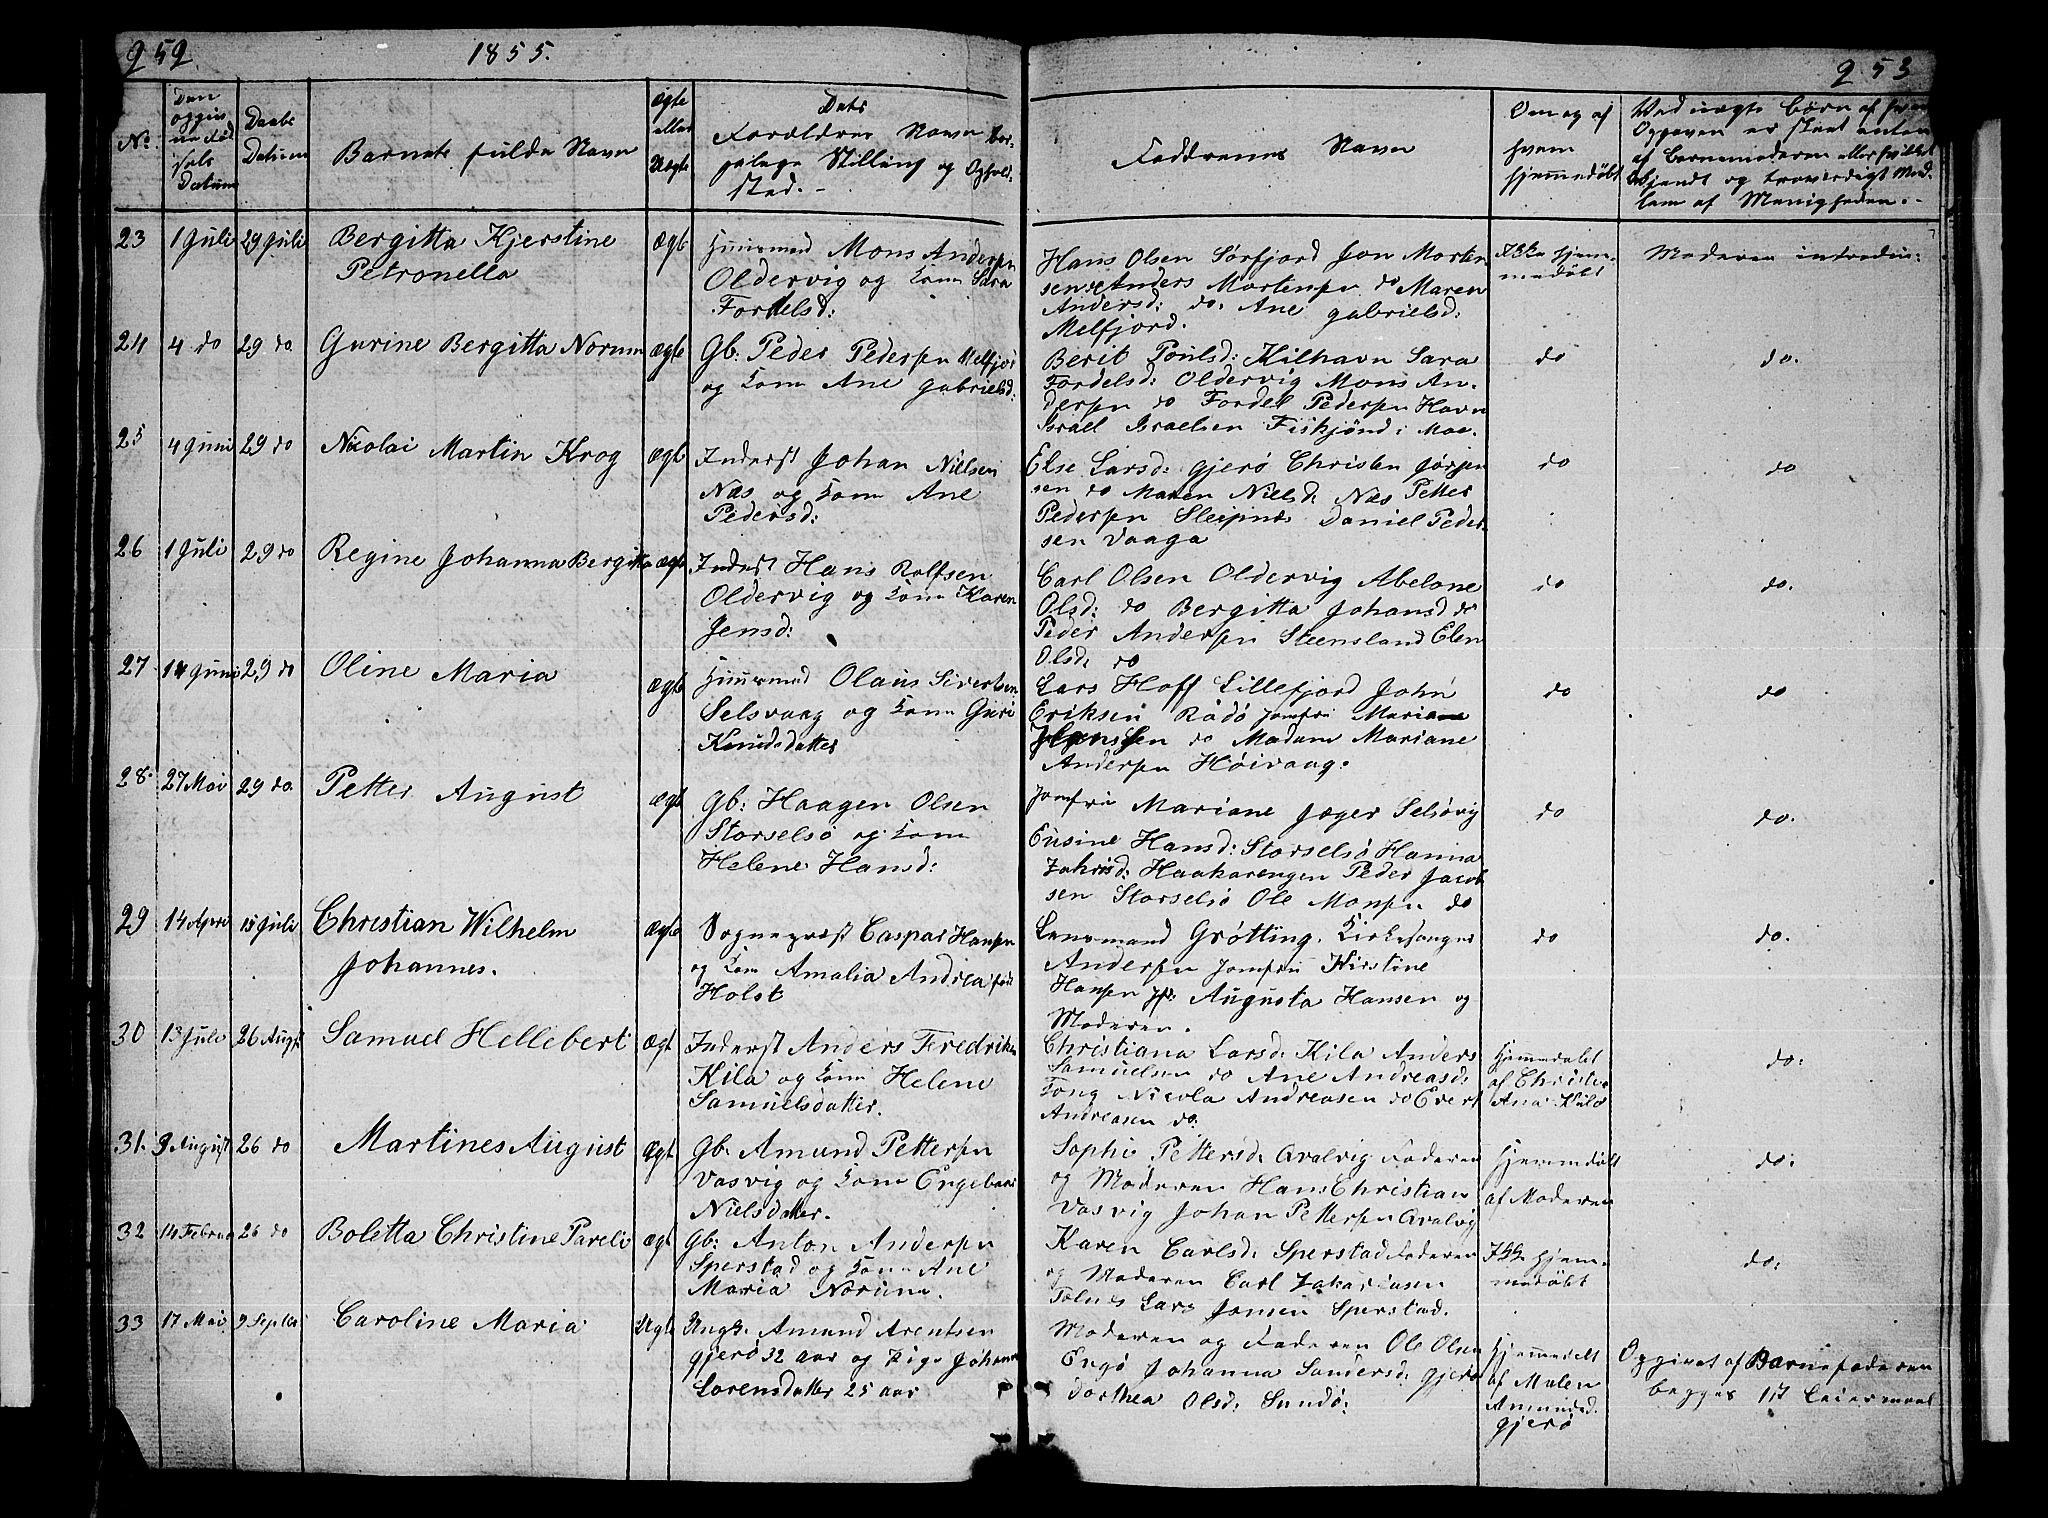 252
1855.
253
No.
Den opgivne Fødsels Datum
Daabs Datum
Barnets fulde Navn
Ægte eller Uægte
Dets Forældres Navn Borgelige Stilling og Opholdsted.-
Faddrenes Navn
Om og af hvem hjemmedöbt
Ved uægte Börn af hvem Opgaven er skeet enten af Barnemoderen eller hvilket bekjendt og troværdigt Medlem af Menigheden.-
23 1 Juli 29 Juli Bergitta Kjerstine Ægt Huusmand Mons Andersen
Petronella
Oldervig og Kone Sara
Fordelsd:
Hans Olsen Sørfjord Jon Morten
sen do Anders Mortensen do Maren
Andersd: do. Ane Gabrielsd:
Melfjord.
Ikke hjem-
medöbt
Moderen introdu:
24 4 do 29 do Gurine Bergitta Norum Ægte Gb: Peder Pedersen Melfjor
og Kone Ane Gabrielsd:
Berit Poulsd: Kilhavn Sara
Fordelsd: Oldervig Mons An-
dersen do Fordel Pedersen Havn
Israel Israelsen Fiskjönd i Moe.
do
do.
25 4 Juni 29 do Nicolai Martin Krog Ægt Inderst Johan Nielsen
Næs og Kone Ane
Pedersd:
Else Larsd: Gjerö Christen Jörgen
sen do Maren Nielsd: Næs Petter
Pedersen Sleipnes Daniel Peder-
sen Vaaga
do
do
26 1 Juli 29 do Regine Johanna Bergitta Ægt Inderst Hans Rolfsen
Oldervig og Kone Karen
Jensd:
Carl Olsen Oldervig Abelone
Olsd: do Bergitta Johansd do
Peder Andersen Steensland Elen
Olsd: do
do
do.
27 14 Juni 29 do Oline Maria Ægte Huusmand Olaus Sivertsen
Selsvaag og Kone Guri
Knudsdatter
Lars Hoff Lillefjord John
Eriksen Rödö Jomfru Mariane
do Madam Mariane
Andersen Höivaag.
do
do
28. 27 Mai 29 do. Petter August Ægt Gb: Haagen Olsen
Storselsö og Kone
Helene Hansd:
Jomfru Mariane Jæger Selsövig
Eusine Hansd: Storselsö Hanna
Zakrisd: Haakarengen Peder Jacob
sen Storselsö Ole Monsen do
do
do.
29 14 April 15 Juli Christian Wilhelm Ægte Sognepræst Caspar Hansen
Johannes.
og Kone Amalia Andrea föd
Holst
Lensmand Grötting. Kirkesanger
Andersen Jomfru Kirstine
Hansen Jfr: Augusta Hansen og
Moderen.
do
do.
30 13 Juli 26 August Samuel Hellebert Ægt Inderst Anders Fredriksen
Kila og Kone Helene
Samuelsdatter.
Christiana Larsd: Kila Anders
Samuelsen do Ane Andreasd:
Tong Nicola Andreasen do Evert
Andreasen do.
Hjemmedöbt
af Christi-
Ana Kila
do:
31. 9 August 26 do Martines August Ægt Gb. Amund Pettersen
Vasvig og Kone Engeborg
Nielsdatter.
Sophi Pettersd: Qvalvig Faderen
og Moderen Hans Christian
Vasvig Johan Pettersen Qvalvig
Hjemmdöbt
af Moderen
do:
32 14 Februar 26 do Boletta Christine Pareli Ægt Gb: Anton Andersen
Sperstad og Kone Ane
Maria Norum.
Karen Carlsd: Sperstad Faderen
og Moderen Carl Zakariasen
Tolnes Lars Jonsen Sperstad.
Ikke hjem-
medöbt
do:
33 17 Mai 9 Septbr Caroline Maria Uægte Ungk: Amund Arentsen
Gjerö 32 aar og Pige Johanna
Lorensdatter 25 aar
Moderen og Faderen Ole Olsen
Engö Johanna Sandersd: Gjerö
Dorthea Olsd: Sundö:
Hjemmedöbt
af Malen
Amundsd.
Gjerö
Opgivet af Barnefaderen
begges 1st Leiermaal